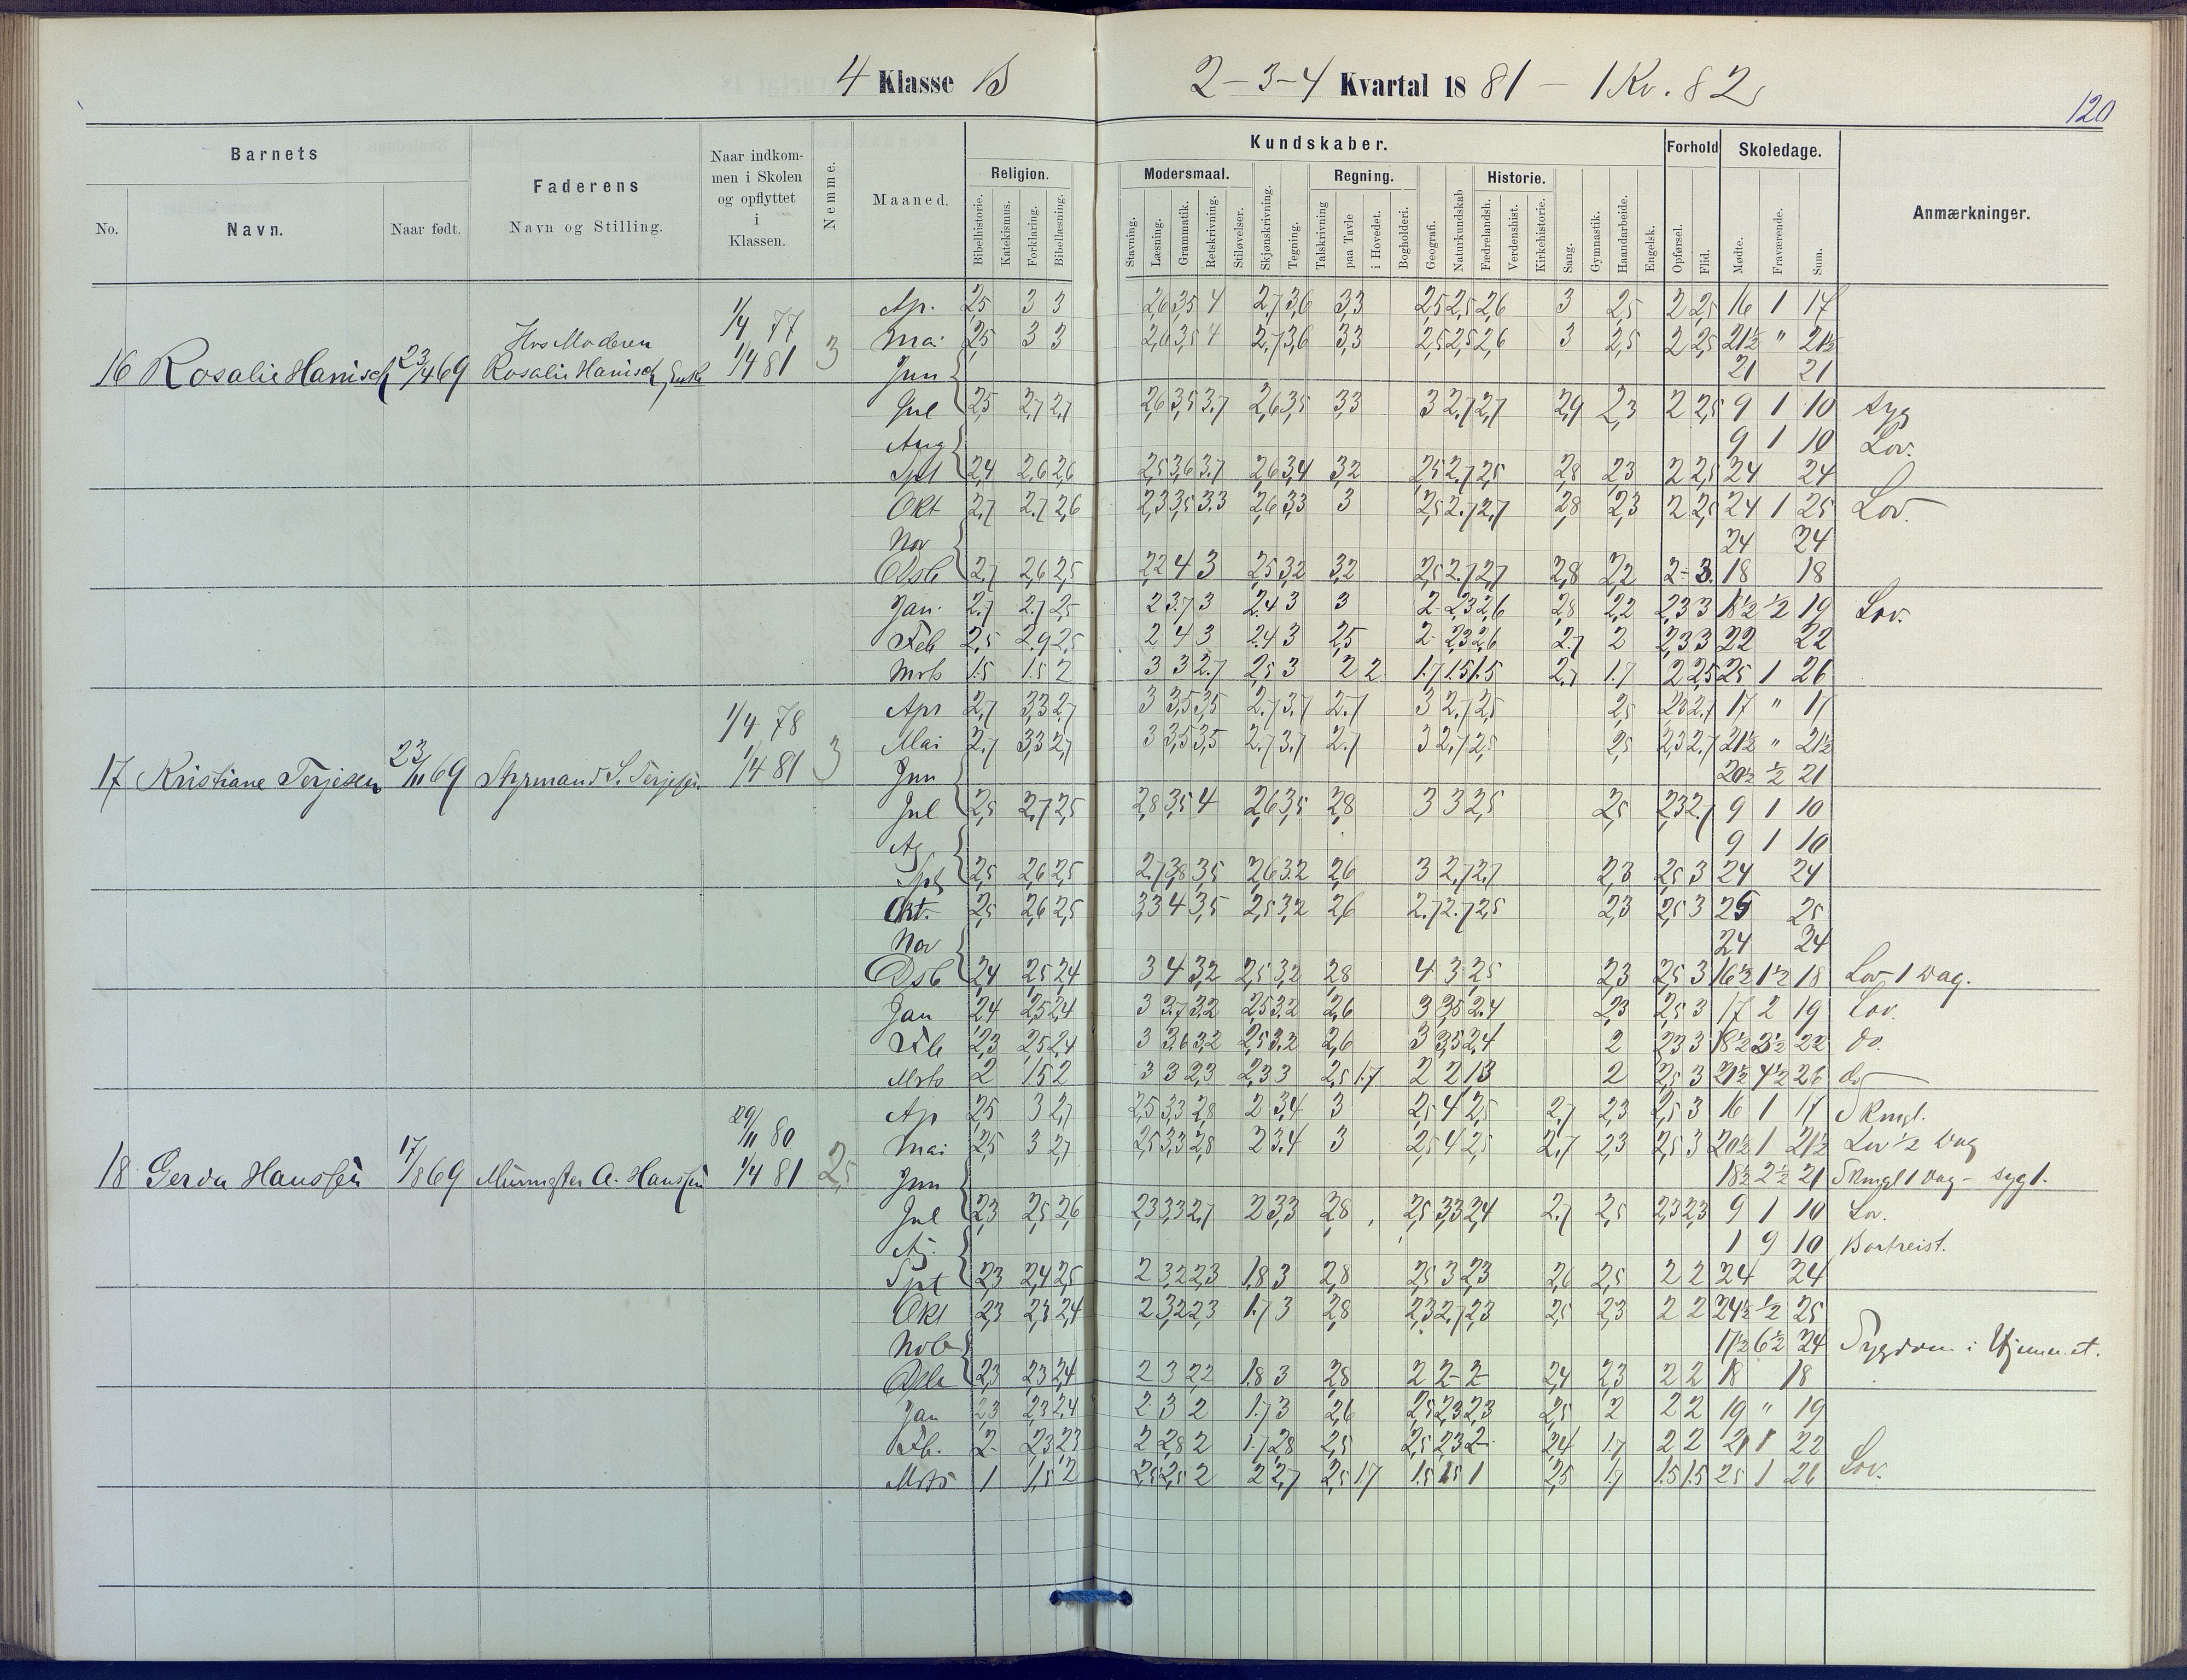 4 Klasse B
2-3-4 Kvartal 1881 - 1 Kv. 82
120
Barnets
Faderens
Naar indkommen i Skolen og opflyttet i Klassen.
Nemme.
Maaned.
Kundskaber.
Forhold
Skoledage.
Anmærkninger.
No.
Navn.
Naar født.
Navn og Stilling.
Religion.
Modersmaal.
Regning.
Historie.
Bibelhistorie.
Katekismus.
Forklaring.
Bibellæsning.
Stavning.
Læsning.
Grammatik.
Retskrivning.
Stiløvelser.
Skjønskrivning.
Tegning.
Talskrivning
paa Tavle
i Hovedet.
Bogholderi.
Geografi.
Naturkundskab
Fædrelandsh.
Verdenshist.
Kirkehistorie.
Sang.
Gymnastik.
Haandarbeide.
Engelsk.
Opførsel.
Flid.
Mødte.
Fraværende.
Sum.
16 Rosalie Hanisch 23/4 69 Hos Moderen Rosalie Hanisch, Enke 1/4 77 1/4 81 3
Ap. 2,5 3 3 2,6 3,5 4 2,7 3,6 3,3 2,5 2,5 2,6 3 2,5 2 2,5 16 1 17
Mai 2,5 3 3 2,6 3,5 4 2,7 3,6 3,3 2,5 2,5 2,6 3 2,5 2 2,5 21½ " 21½
Jun 21 21
Jul 2,5 2,7 2,7 2,6 3,5 3,7 2,6 3,5 3,3 3 2,7 2,7 2,9 2,3 2 2,5 9 1 10 Syg
Aug 9 1 10 Lov.
Spt 2,4 2,6 2,6 2,5 3,6 3,7 2,6 3,4 3,2 2,5 2,7 2,5 2,8 2,3 2 2,5 24 24
Okt 2,7 2,7 2,6 2,3 3,5 3.3 2,6 3,3 3 2,5 2,7 2,7 2,8 2,3 2 2,5 24 1 25 Lov.
Nov 24 24
Dsb 2,7 2,6 2,5 2,2 4 3 2,5 3,2 3,2 2,5 2,7 2,7 2,8 2,2 2- 3. 18 18
Jan. 2,7 2,7 2,5 2 3,7 3 2,4 3 3 2 2,3 2,6 2,8 2,2 2,3 3 18½ ½ 19 Lov.
Feb 2,5 2,9 2,5 2 4 3 2,4 3 2,5 2 2,3 2,6 2,7 2 2,3 3 22 22
Mrts 1.5 1.5 2 3 3 2.7 2,5 3 2 2 1.7 1.5 1.5 2,7 1.7 2 2,5 25 1 26
17 Kristiane Terjesen 23/11 69 Styrmand S. Terjesen 1/4 78 1/4 81 3
Apr 2,7 3,3 2,7 3 3,5 3,5 2,7 3,7 2.7 3 2,7 2,5 2,5 2,3 2,7 17 " 17
Mai 2,7 3,3 2,7 3 3,5 3,5 2,7 3,7 2.7 3 2,7 2,5 2,5 2,3 2,7 21½ " 21½
Jun 20½ ½ 21
Jul 2,5 2,7 2,5 2,8 3,5 4 2,6 3,5 2,8 3 3 2,5 2,5 2,3 2,7 9 1 10
Ag 9 1 10
Spt 2,5 2,6 2,5 2,7 3,8 3,5 2,6 3.2 2,6 3 2,7 2,7 2,3 2,5 3 24 24
Okt. 2,5 2,6 2,5 3,3 4 3,5 2,5 3,2 2,6 2,7 2,7 2,5 2,3 2,5 3 25 25
Nov 24 24
Dsb 2,4 2,5 2,4 3 4 3,2 2,5 3,2 2,8 4 3 2,5 2,3 2,5 3 16½ 1½ 18 Lov 1 Dag.
Jan 2,4 2,5 2,4 3 3,7 3,2 2,5 3.2 2,6 3 3,5 2,4 2,3 2,5 3 17 2 19 Lov.
Feb 2,3 2,5 2,4 3 3,6 3,2 2,5 3.2 2,6 3 3,5 2,4 2 2,3 3 18½ 3½ 22 do.
Mrts 2 1.5 2 3 3 2,3 2,3 3 2,5 1.7 2 2 1,3 2 2,5 3 21½ 4½ 26 do
18 Gerda Hanssen 17/8 69 Murmester A. Hanssen 29/11 80 1/4 81 2,5
Ap 2,5 3 2,7 2,5 3,3 2,8 2 3,4 3 2,5 4 2,5 2,7 2,3 2,5 3 16 1 17 Skmgl.
Mai 2,5 3 2,7 2,5 3,3 2,8 2 3.4 3 2,5 4 2,5 2,7 2,3 2,5 3 20½ 1 21½ Lov ½ Dag
Jun 18½ 2½ 21 Skmgl 1 Dag - syg 1.
Jul 2,3 2,5 2,6 2,3 3,3 2,7 2 3,3 2,8 2,5 3,3 2,4 2,7 2,5 2,3 2,3 9 1 10 Lov.
Ag. 1 9 10 Bortreist.
Spt 2,3 2,4 2,5 2 3,2 2,3 1,8 3 2,8 2,5 3 2,3 2,6 2,5 2 2 24 24
Okt 2,3 2,5 2,4 2 3,2 2,3 1.7 3 2,8 2,3 2,7 2,3 2,5 2,3 2 2 24½ ½ 25
Novb 17½ 6½ 24 Sygdom i Hjemmet.
Dsb 2,3 2,3 2,4 2 3 2,2 1.8 3 2,8 2 2 2 2,4 2,3 2 2 18 18
Jan 2,3 2,3 2,4 2 3 2 1.7 3 2,6 2,5 2,3 2,3 2,5 2 2 2 19 " 19
Feb. 2 2,3 2,3 2 2,8 2 1.7 2,8 2,5 2,5 2,3 2 2,4 1.7 2 2 21 1 22
Mrts 1 1,5 2 2,5 2,5 2 2 2,7 2,5 1.7 1.5 1.5 1 2,5 1,7 1.5 1.5 25 1 26 Lov.